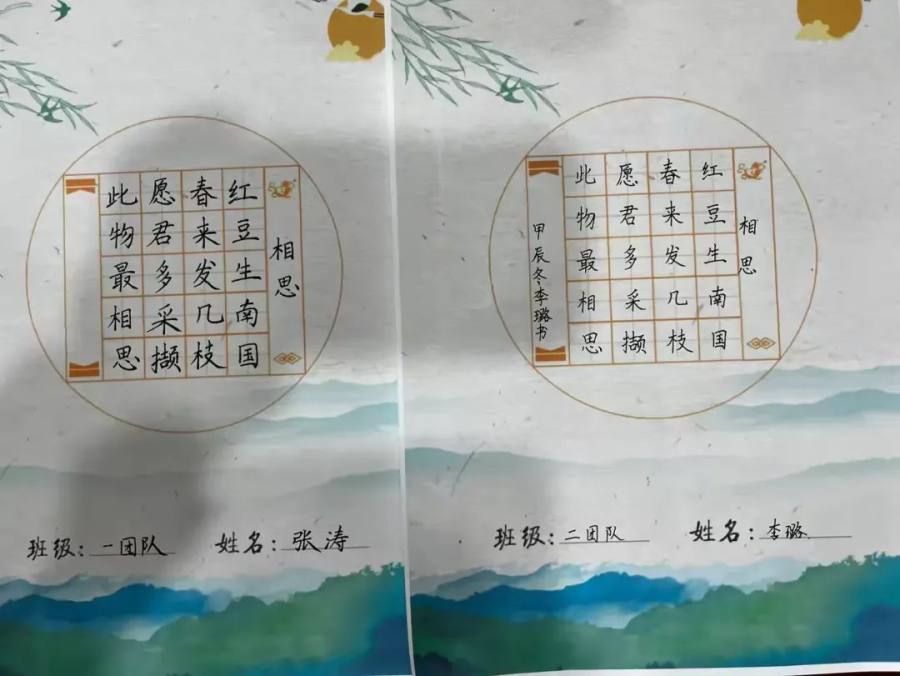 相思
红豆生南国
春来发几枝
愿君多采撷
此物最相思
班级：一团队
姓名：张涛
相思
红豆生南国
春来发几枝
愿君多采撷
此物最相思
甲辰冬李璐书
班级：二团队
姓名：李璐